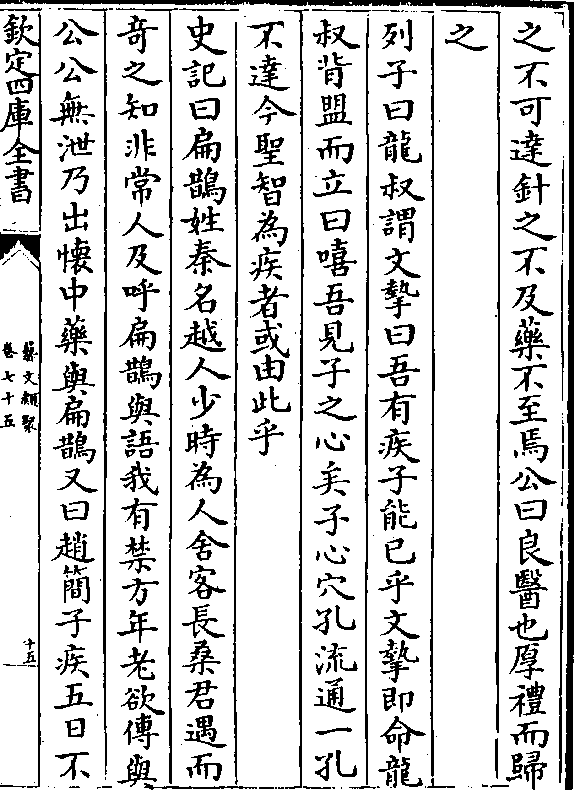 之不可達針之不及藥不至焉公曰良醫也厚禮而歸
之
列子曰龍叔謂文摯曰吾有疾子能已乎文摯即命龍
叔背盟而立曰嘻吾見子之心矣子心穴孔流通一孔
不達今聖智為疾者或由此乎
史記曰扁鵲姓秦名越人少時為人舍客長桑君遇而
竒之知非常人及呼扁鵲與語我有禁方年老欲傳與
公公無泄乃出懷中藥與扁鵲又曰趙簡子疾五日不
欽定四庫全書
藝文類聚
卷七十五
十五